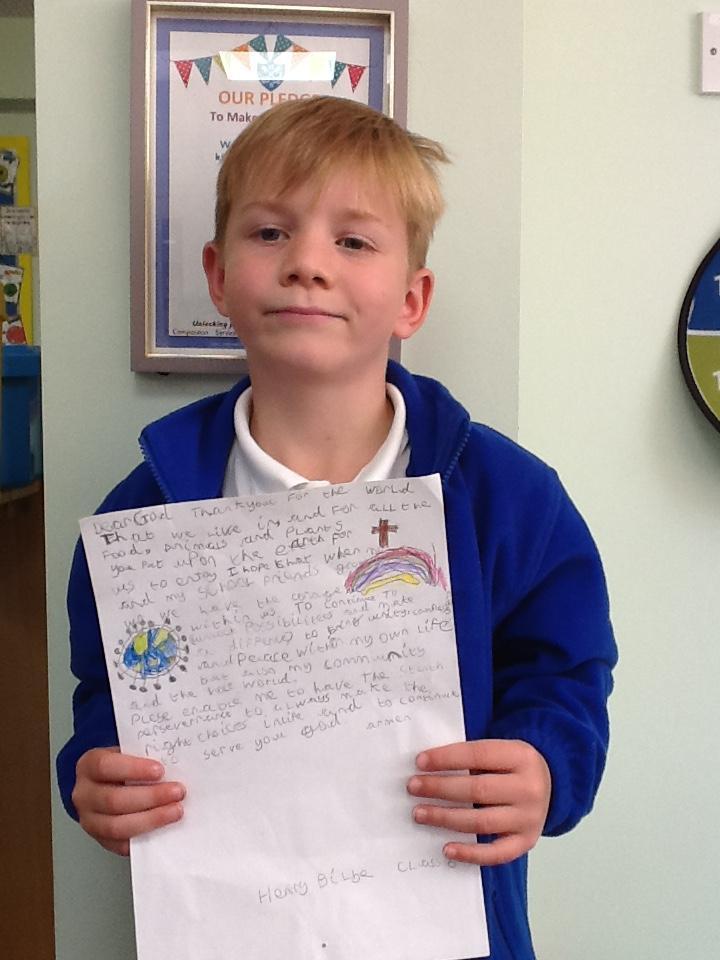 OUR PLEDGE
To Make
Unlocking
Compassion Service
Dear God Thankyou For the World
That we Live in and For all the
Food, Animals and Plants
you put upon the earth for
us to enjoy I hope that when
and my school Friends
we have the
within us To continue To
Possibilities and make
a to bring unity,
and Peace Within my own Life
but also my community
and the World.
Plese enable me to have the
perserverance to always make the
right choices in life and to continue
to serve you god amen
Henry Bilbe Class 6